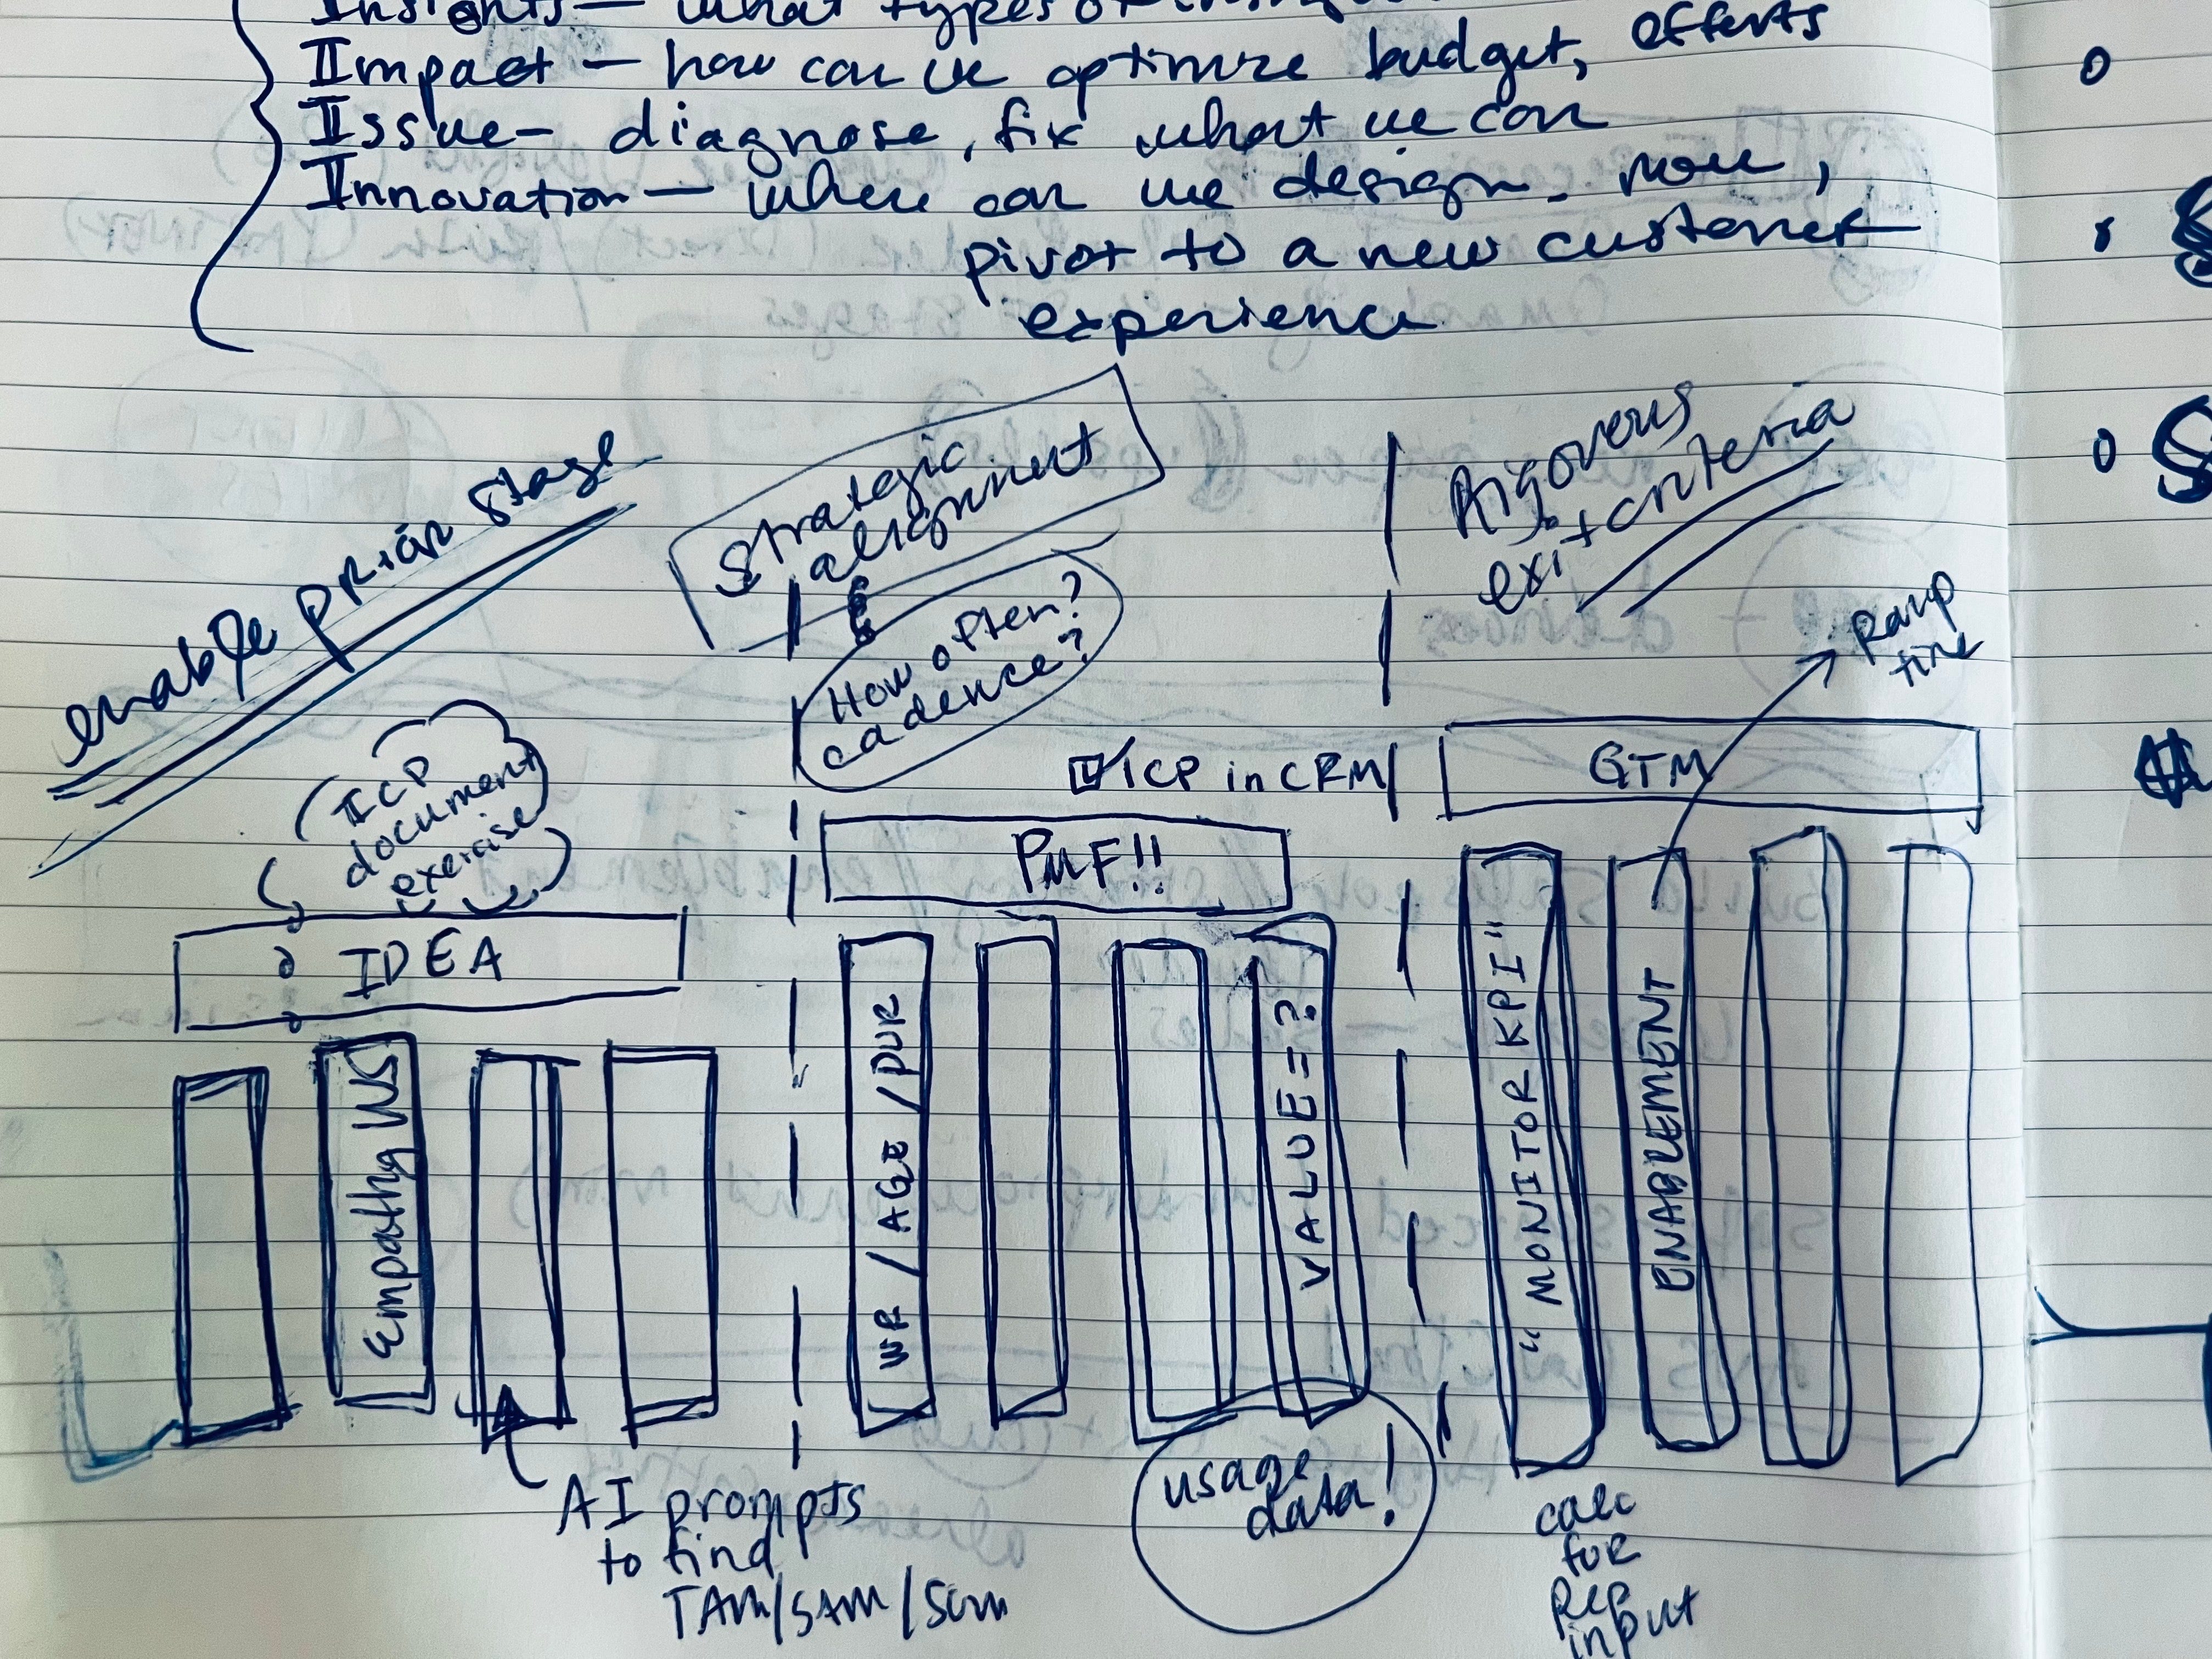 Insights — what types of
Impact — how can we optimize budget, efforts
Issue — diagnose, fix what we can
Innovation — where can we design now,
pivot to a new customer
experience
enable prior stage
Strategic
alignment
How often?
cadence?
Rigorous
exit criteria
Ramp
time
ICP
document
exercise
ICP in CRM
GTM
PMF!!
IDEA
Empathy WS
WR / AGE / DUR
VALUE = ?
"MONITOR KPI"
ENABLEMENT
AI prompts
to find
TAM/SAM/SOM
usage
data!
calc
for
Rep
input